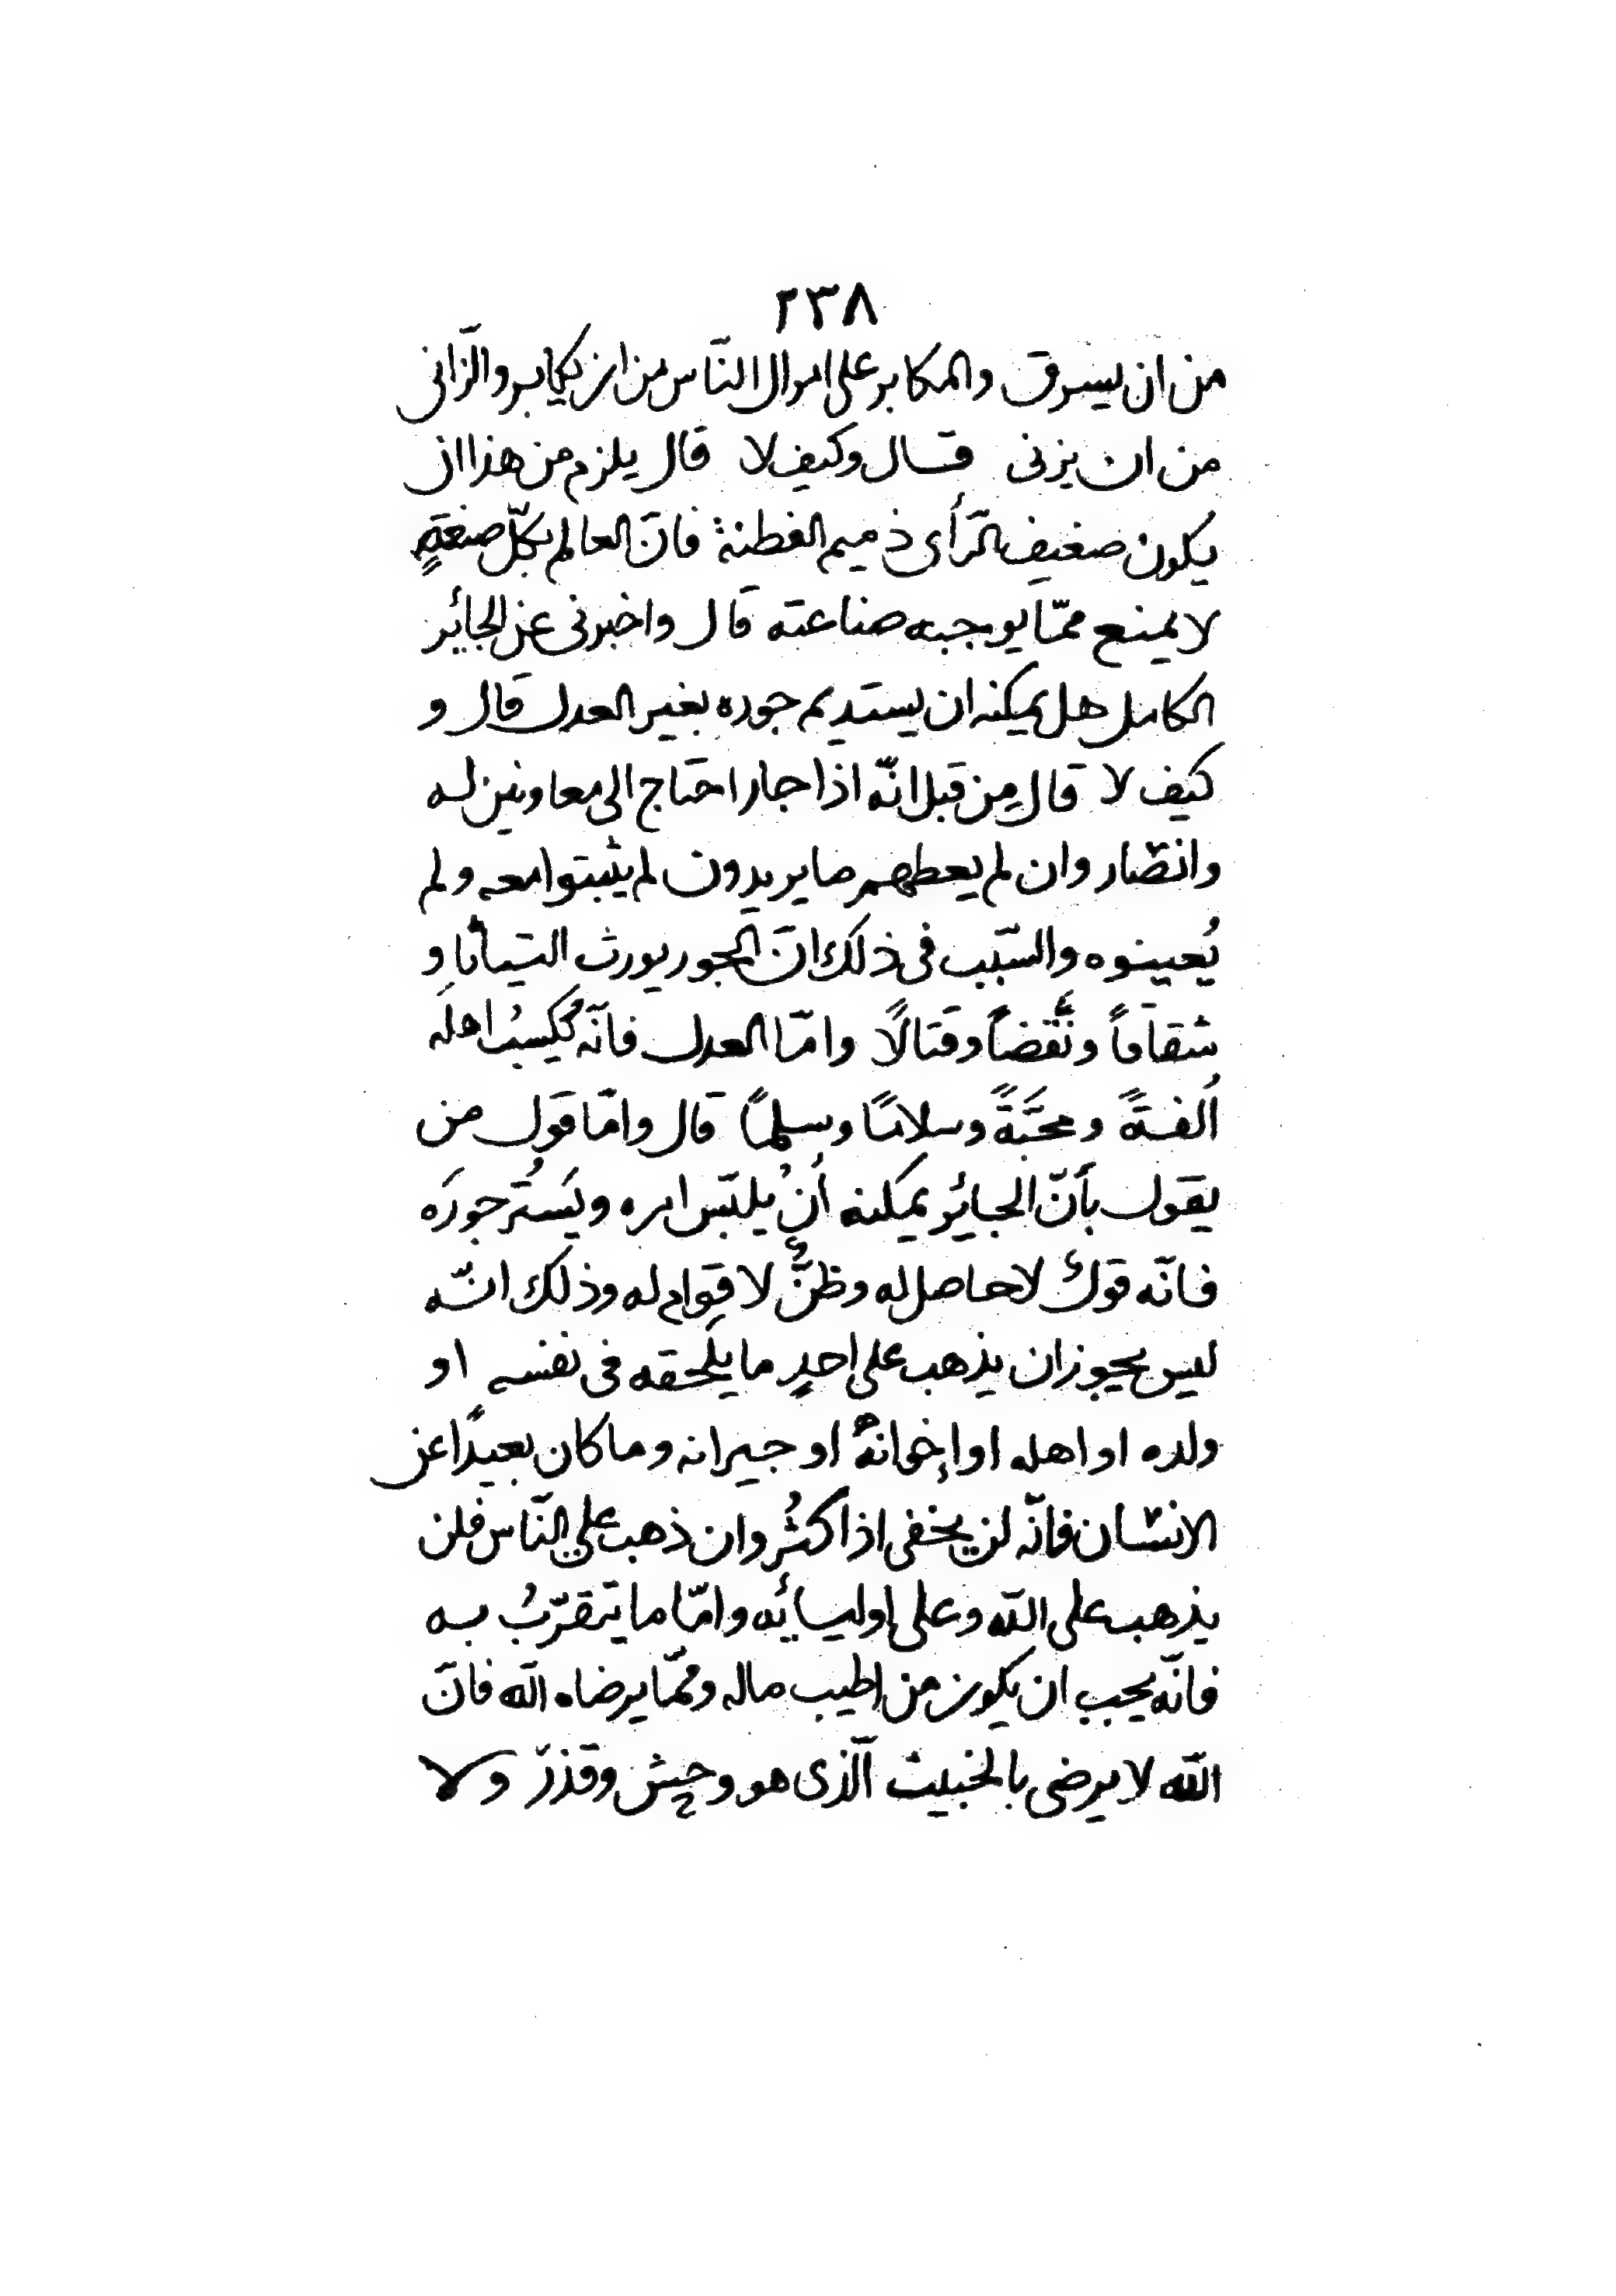 ٢٣٨
من ان يسرق والمكابر على اموال النّاس من ان يكابر والزّانى
من ان يزنى قال وكيف لا قال يلزم من هذا ان
يكون ضعيف الرّأى ذميم الفطنة فانّ العالم بكلّ صنعةٍ
لا يمنع ممّا يوجبه صناعته قال واخبرنى عن الجائر
الكامل هل يمكنه ان يستديم جوره بغير العدل قال و
كيف لا قال مِن قبل انّه اذا جار احتاج الى معاونين له
وانصار وان لم يعطهم ما يريدون لم يثبتوا معه ولم
يُعينوه والسّبب فى ذلك انّ الجور يورث
شقاقاً ونقضاً وقتالًا وامّا العدل فانّه يُكسبُ اهله
اُلفةً ومحبّةً وسلامًا وسلمًا قال وامّا قول من
يقول بأنّ الجائر يمكنه أن يُلبّس امره ويَستُر جورَه
فانّه قولٌ لا حاصل له وظنٌّ لا قِوام له وذلك انّه
ليس يجوز ان يذهب على احدٍ ما يلحقه فى نفسه او
ولده او اهله او إخوانه او جيرانه وما كان بعيدًا عن
الانسان فانّه لن يخفى اذا كثُر وان ذهب على النّاس فلن
يذهب على اللّه وعلى اوليائه وامّا ما يتقرّبُ به
فانّه يجب ان يكون من اطيب ماله وممّا يرضاه اللّه فانّ
اللّه لا يرضى بالخبيث الّذى هو وحش وقذر ولا